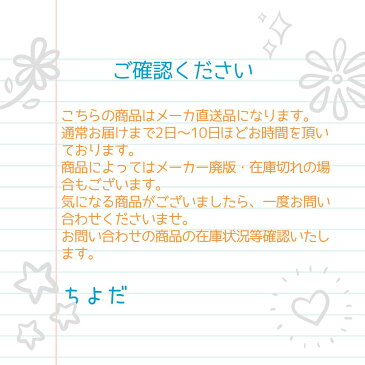 ご確認ください
こちらの商品はメーカ直送品になります。
通常お届けまで2日〜10日ほどお時間を頂い
ております。
商品によってはメーカー廃版・在庫切れの場
合もございます。
気になる商品がございましたら、一度お問い
合わせくださいませ。
お問い合わせの商品の在庫状況等確認いたし
ます。
ちよだ